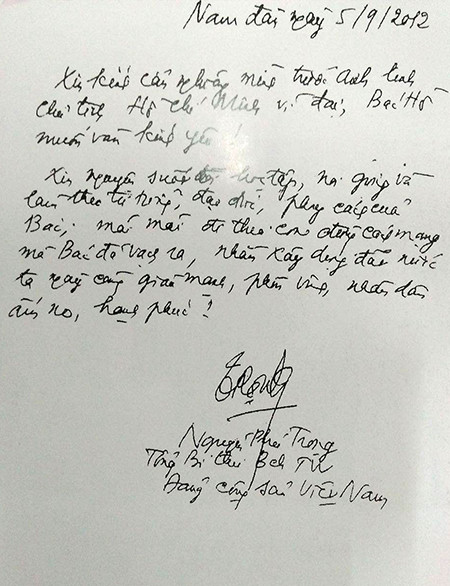 Nam đàn ngày 5/9/2012
Xin kính cẩn nghiêng mình trước Anh linh
Chủ tịch Hồ Chí Minh vĩ đại, Bác Hồ
muôn vàn kính yêu!
Xin nguyện suốt đời học tập, noi gương và
làm theo tư tưởng, đạo đức, phong cách của
Bác; mãi mãi đi theo con đường cách mạng
mà Bác đã vạch ra, nhằm xây dựng đất nước
ta ngày càng giàu mạnh, phồn vinh, nhân dân
ấm no, hạnh phúc!
Trọng
Nguyễn Phú Trọng
Tổng Bí thư Bch TW
Đảng cộng sản Việt Nam